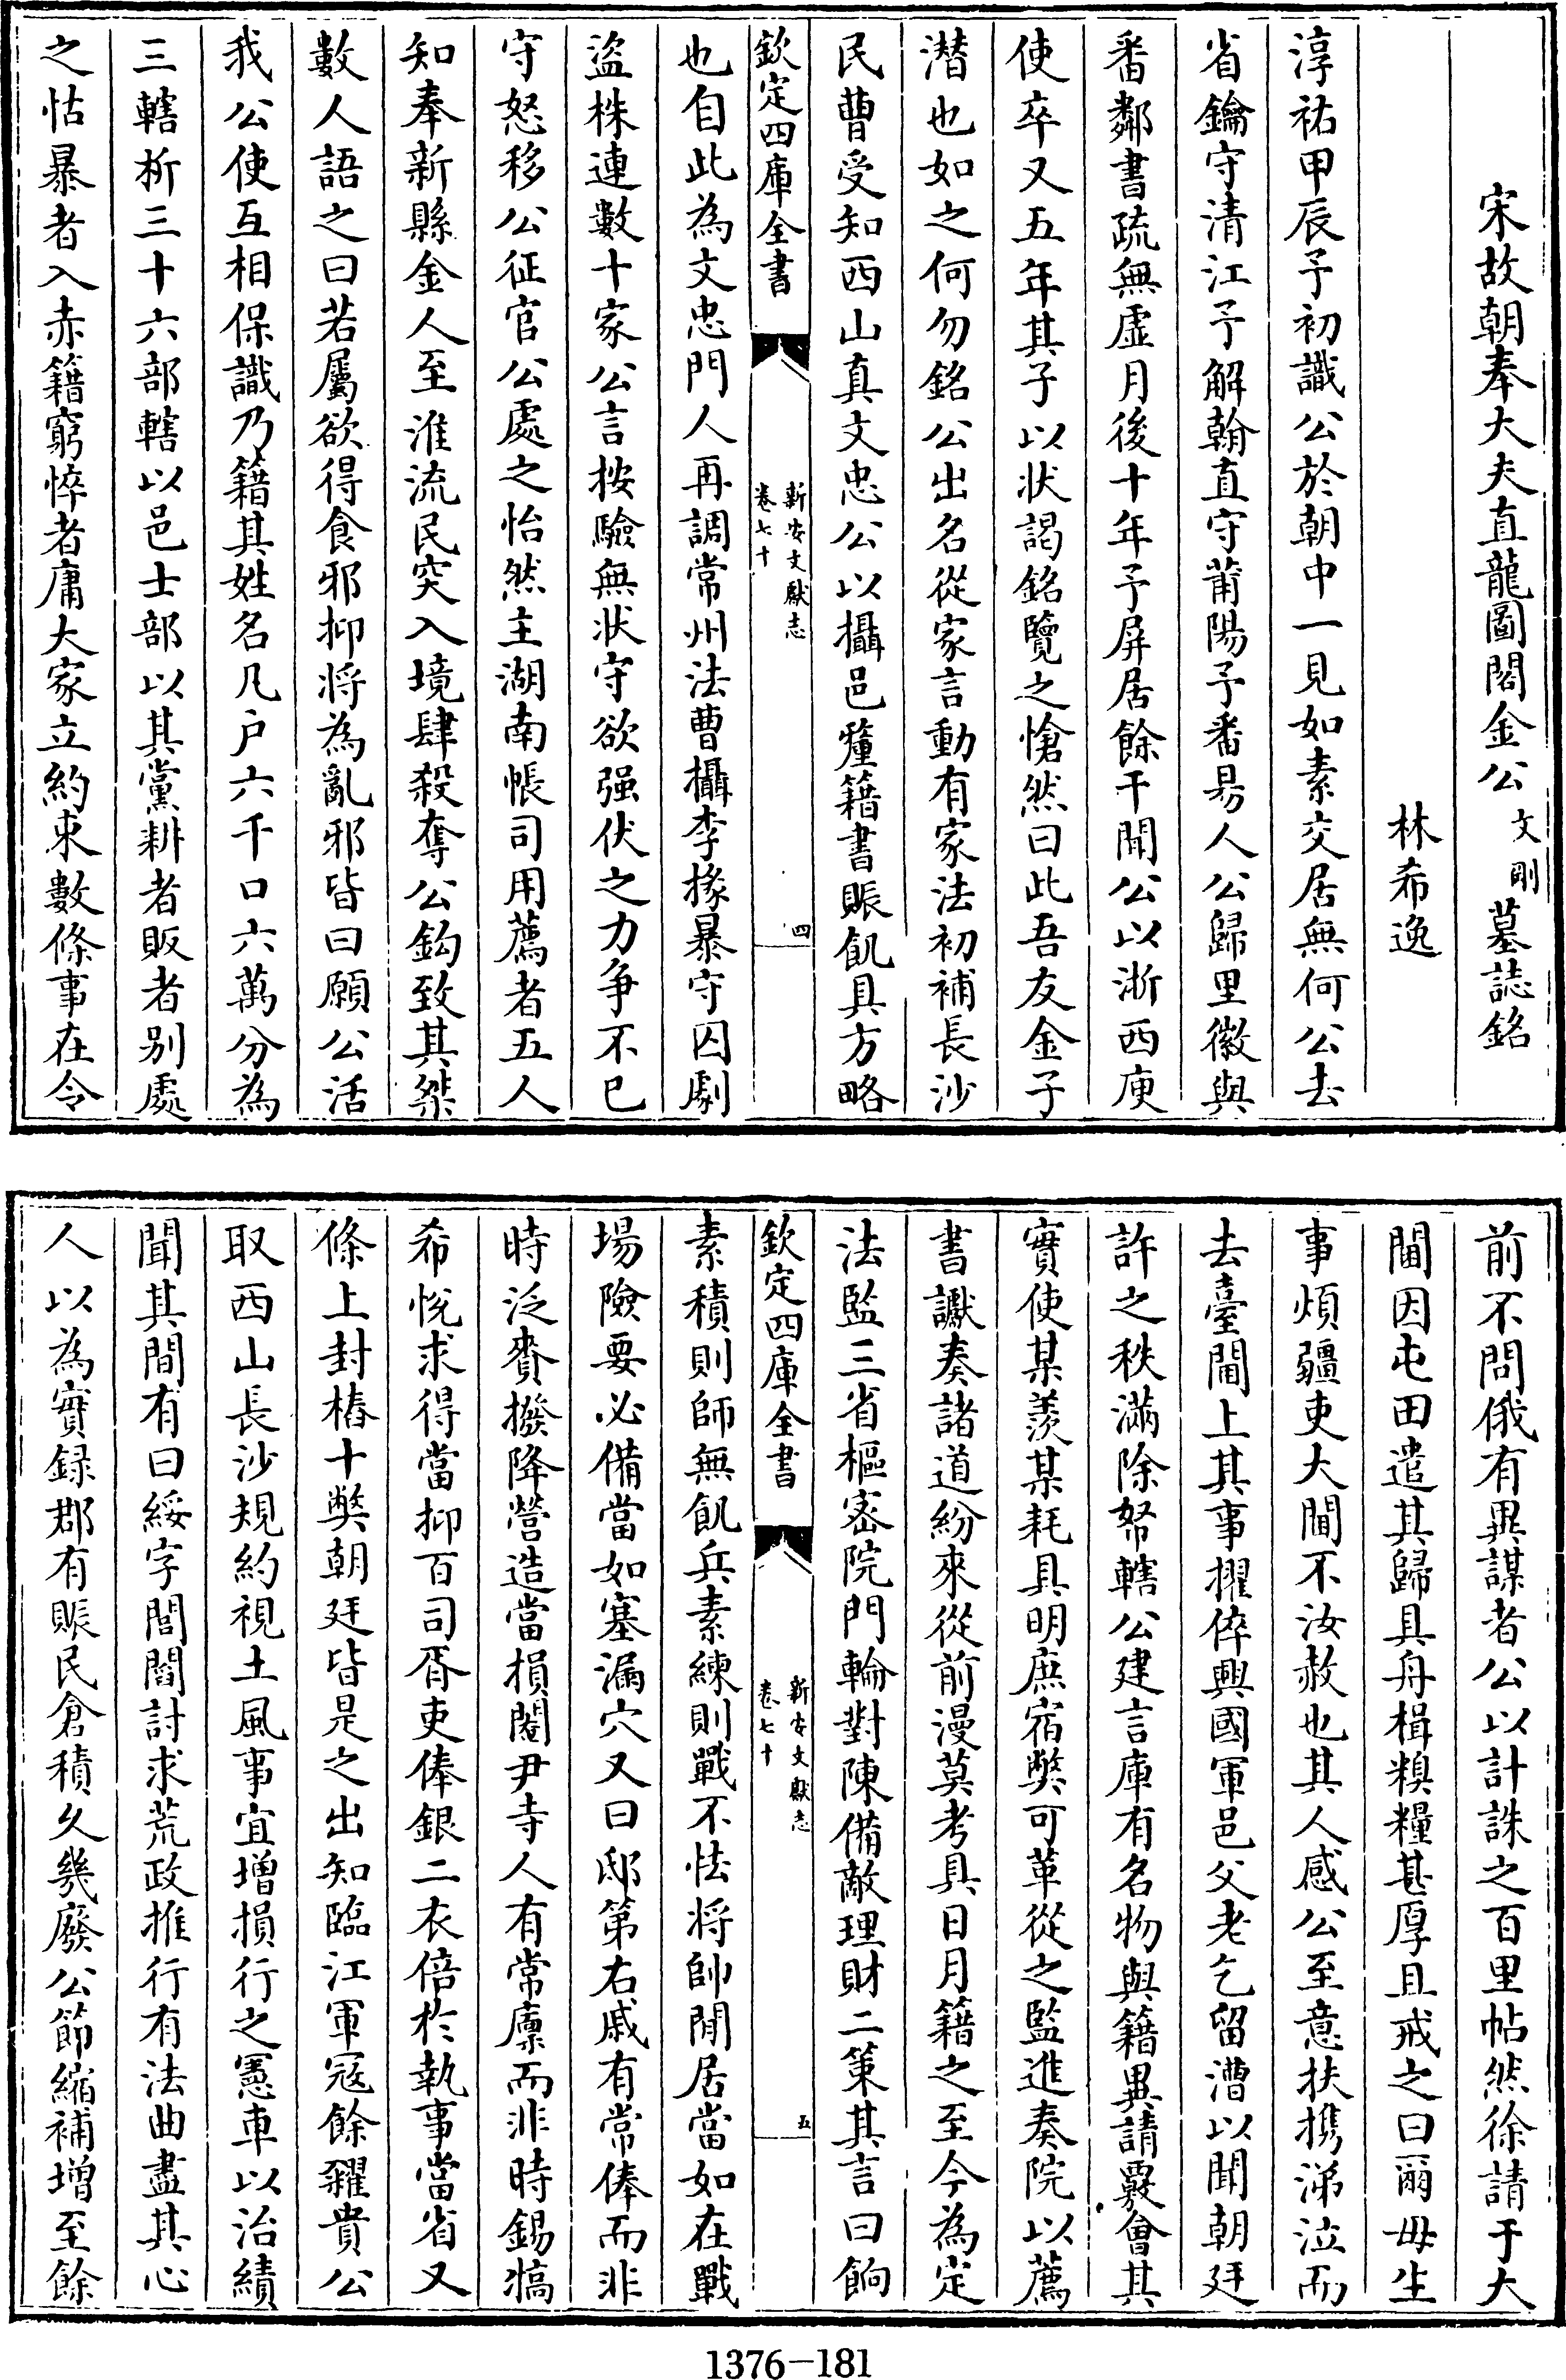 宋故朝奉大夫直龍圖閣金公文剛墓誌銘
林希逸
淳祐甲辰予初識公於朝中一見如素交居無何公去
省鑰守清江予解翰直守莆陽予番昜人公歸里徽與
番鄰書疏無虛月後十年予屏居餘干聞公以浙西庾
使卒又五年其子以狀謁銘覽之愴然曰此吾友金子
潛也如之何勿銘公出名從家言動有家法初補長沙
民曹受知西山真文忠公以攝邑釐籍書賑飢具方略
欽定四庫全書
新安文獻志
卷七十
四
也自此為文忠門人再調常州法曹攝李掾暴守囚劇
盜株連數十家公言按驗無狀守欲强伏之力争不已
守怒移公征官公處之怡然主湖南帳司用薦者五人
知奉新縣金人至淮流民突入境肆殺奪公鈎致其桀
數人語之曰若屬欲得食邪抑將為亂邪皆曰願公活
我公使互相保識乃籍其姓名凡户六千口六萬分為
三轄析三十六部轄以邑士部以其黨耕者販者别處
之怙暴者入赤籍窮悴者庸大家立約束數條事在令
前不問俄有異謀者公以計誅之百里帖然徐請于大
閫因屯田遣其歸具舟楫糗糧甚厚且戒之曰爾毋生
事煩疆吏大閫不汝赦也其人感公至意扶携涕泣而
去臺閫上其事擢倅興國軍邑父老乞留漕以聞朝廷
許之秩滿除帑轄公建言庫有名物與籍異請覈會其
實使某羨某耗具明庶宿弊可革從之監進奏院以薦
書讞奏諸道紛來從前漫莫考具日月籍之至今為定
法監三省樞密院門輪對陳備敵理財二策其言曰餉
欽定四庫全書
新安文獻志
卷七十
五
素積則師無飢兵素練則戰不怯將帥閒居當如在戰
場險要必備當如塞漏穴又曰邸第右戚有常俸而非
時泛賚撥降營造當損閹尹寺人有常廪而非時錫犒
希悅求得當抑百司胥吏俸銀二衣倍於執事當省又
條上封樁十弊朝廷皆是之出知臨江軍冦餘糴貴公
取西山長沙規約視土風事宜增損行之憲車以治績
聞其間有曰綏字閭閻討求荒政推行有法曲盡其心
人以為實録郡有賑民倉積久幾廢公節縮補增至餘
1376-181